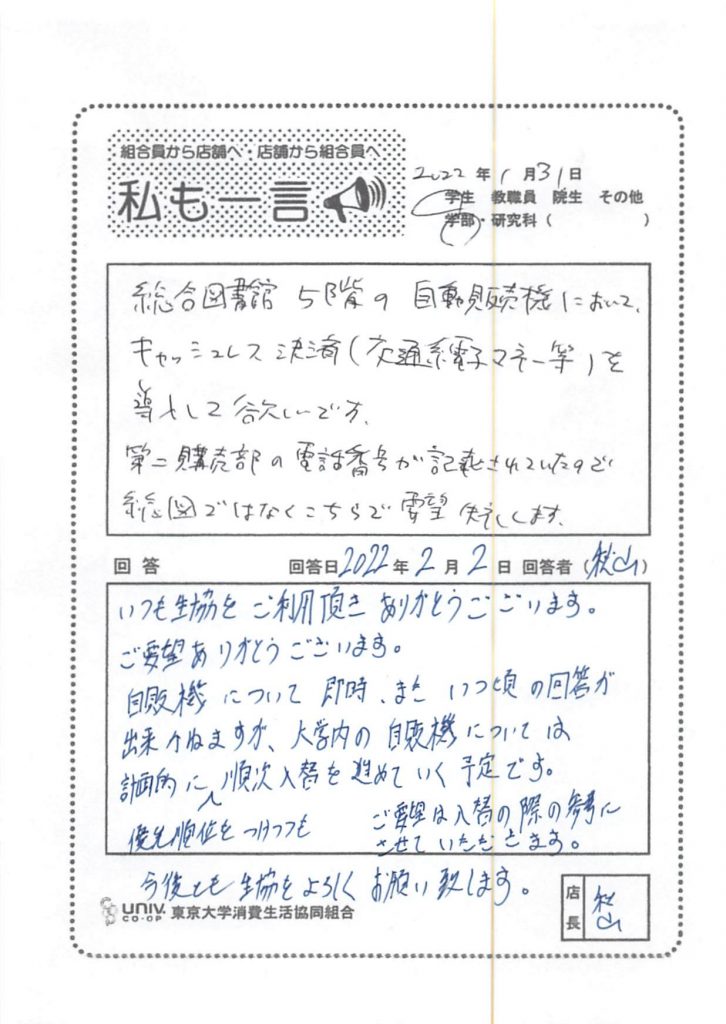 組合員から店舗へ・店舗から組合員へ
私も一言
2022年1月31日
学生 教職員 院生 その他
学部・研究科( )
総合図書館 5階の自動販売機において、
キャッシュレス決済(交通系電子マネー等)を
導入して欲しいです。
第二購買部の電話番号が記載されていたので
総図ではなくこちらで要望失礼します。
回答 回答日2022年2月2日 回答者(秋山)
いつも生協をご利用頂きありがとうございます。
ご要望ありがとうございます。
自販機について即時、また いつ頃の回答が
出来かねますが、大学内の自販機については
計画的に順次入替を進めていく予定です。
優先順位をつけつつも
ご要望は入替の際の参考に
させていただきます。
今後とも生協をよろしくお願い致します。
UNIV. CO-OP 東京大学消費生活協同組合
店長 秋山